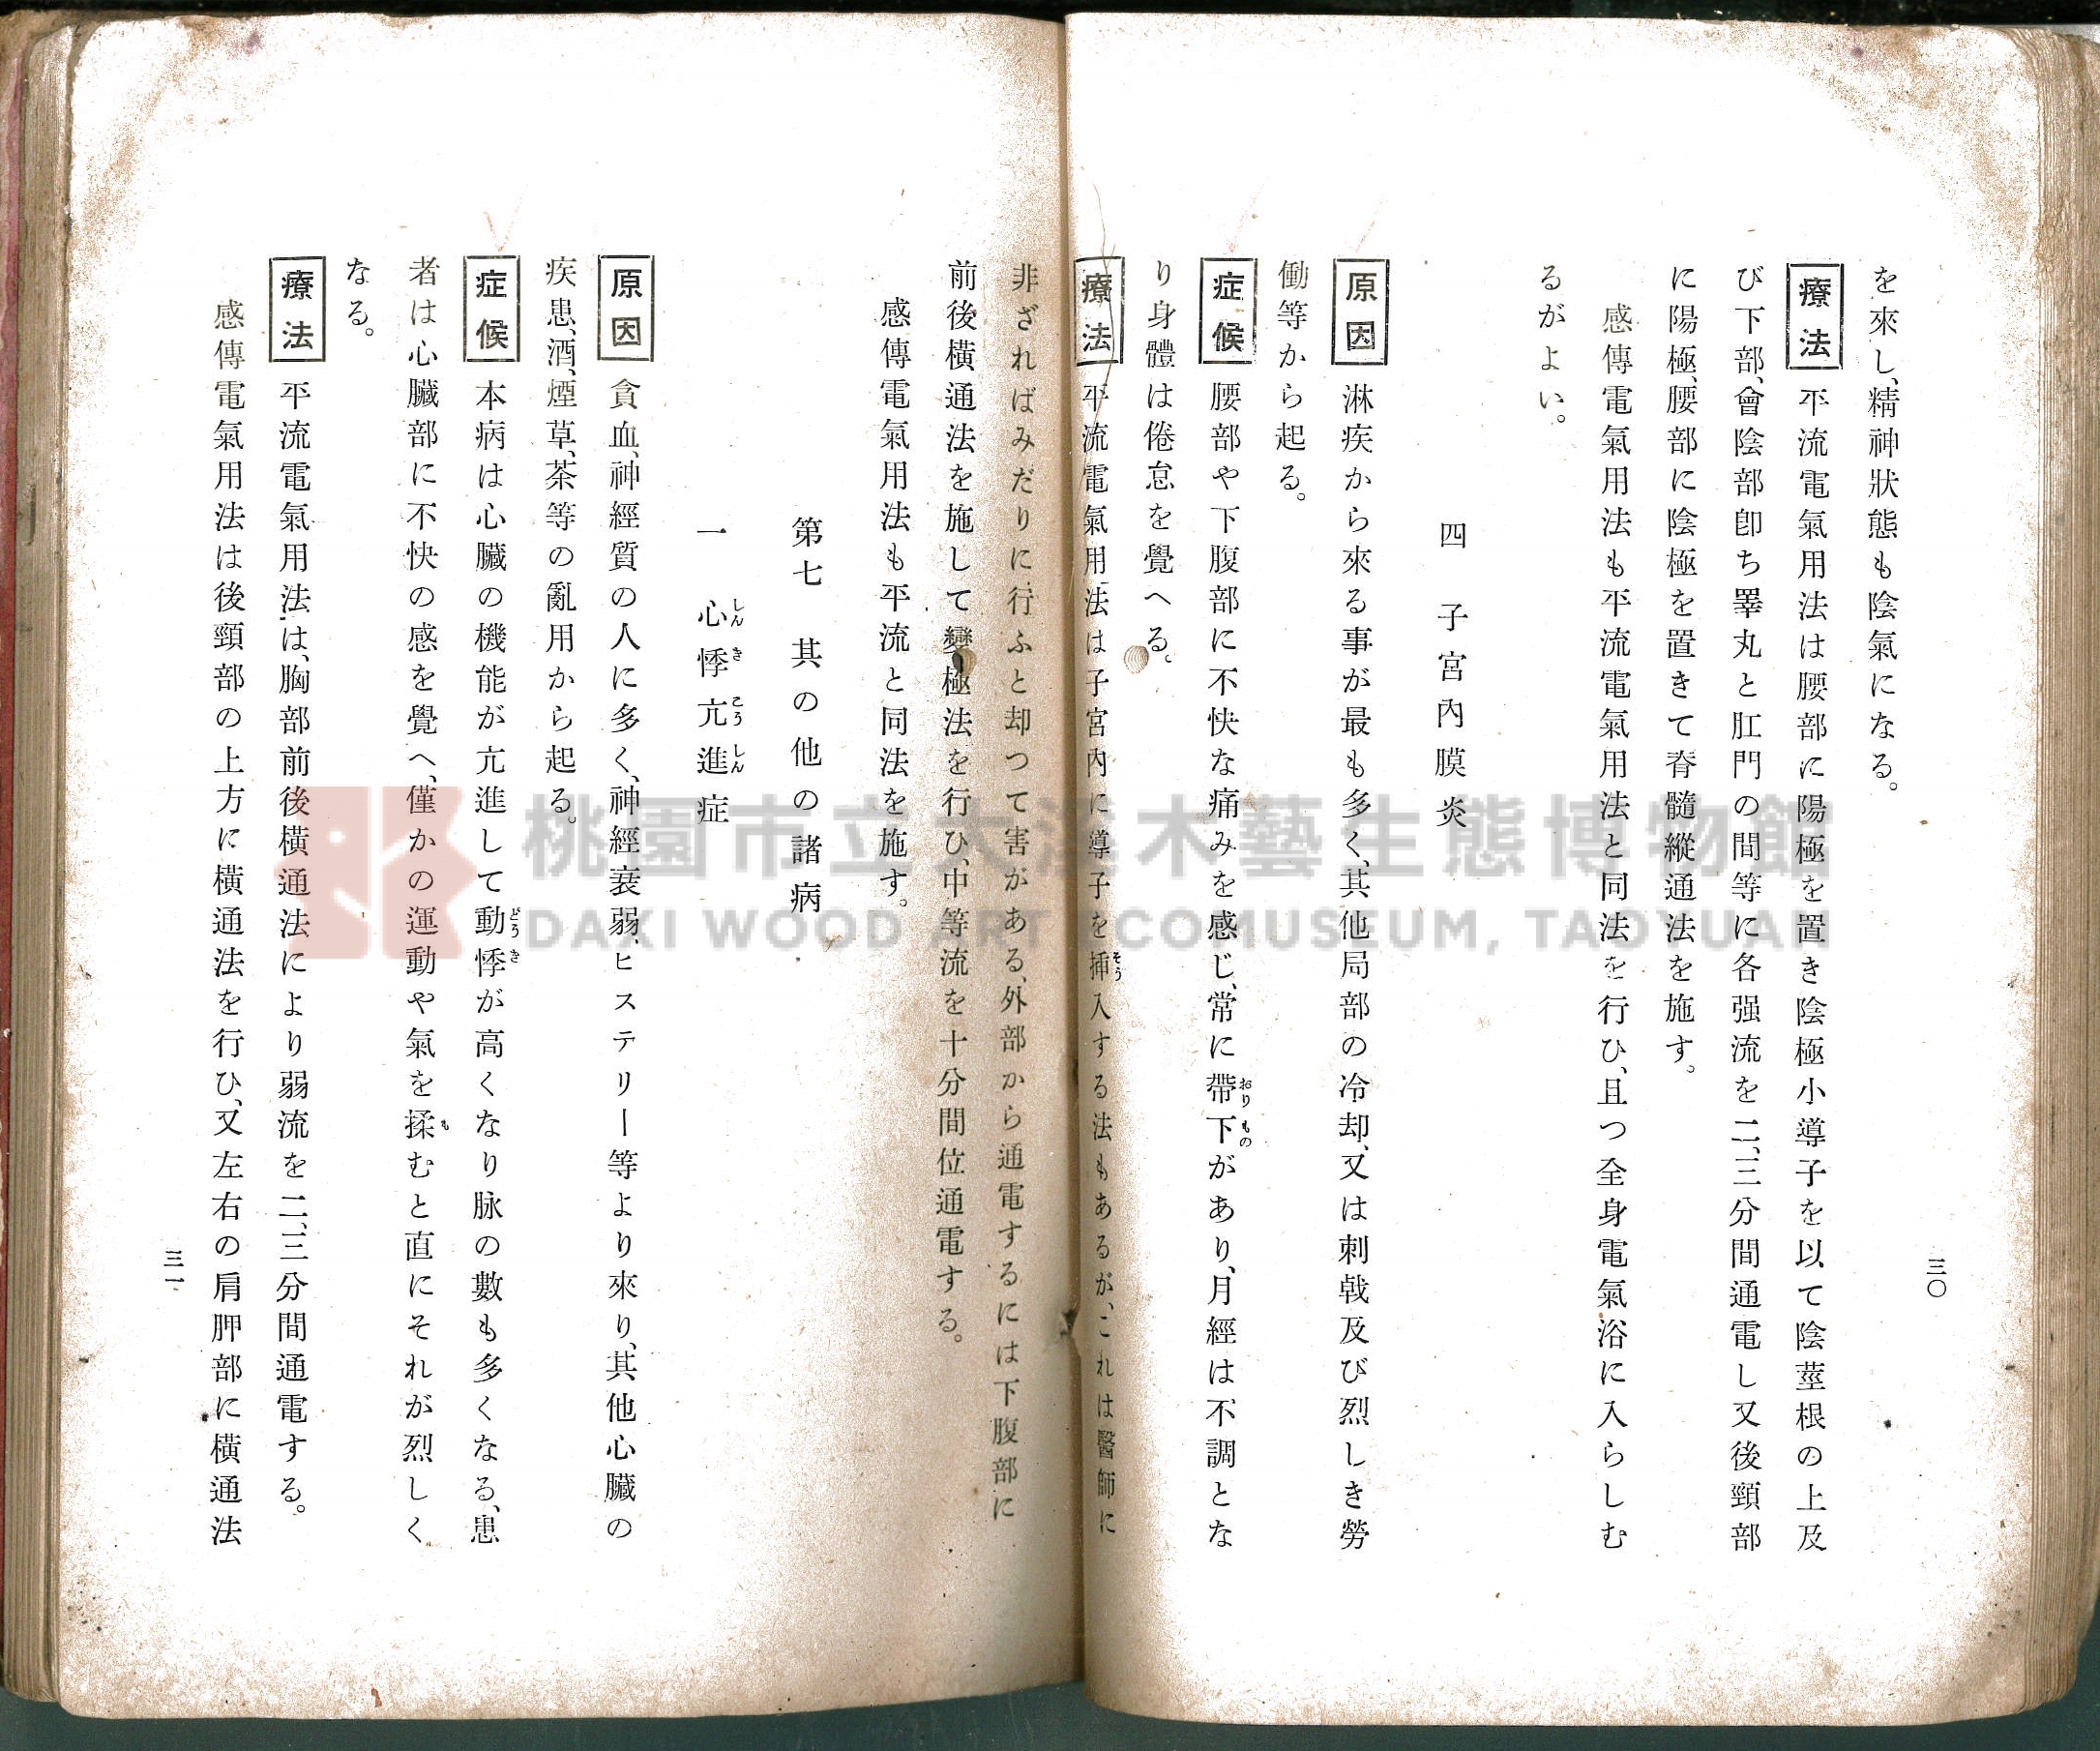 三〇
を來し、精神狀態も陰氣になる。
療法　平流電氣用法は腰部に陽極を置き陰極小導子を以て陰莖根の上及
び下部、會陰部卽ち睾丸と肛門の間等に各强流を二、三分間通電し又後頸部
に陽極、腰部に陰極を置きて脊髓縱通法を施す。
感傳電氣用法も平流電氣用法と同法を行ひ、且つ全身電氣浴に入らしむ
るがよい。
四　子宮內膜炎
原因　淋疾から來る事が最も多く、其他局部の冷却、又は刺戟及び烈しき勞
働等から起る。
症候　腰部や下腹部に不快な痛みを感じ、常に帶下があり、月經は不調とな
り身體は倦怠を覺へる。
療法　平流電氣用法は子宮內に導子を揷入する法もあるが、これは醫師に
非ざればみだりに行ふと却つて害がある、外部から通電するには下腹部に
前後橫通法を施して變極法を行ひ、中等流を十分間位通電する。
感傳電氣用法も平流と同法を施す。
第七　其の他の諸病
一　心悸亢進症
原因　貪血、神經質の人に多く、神經衰弱、ヒステリー等より來り、其他心臟の
疾患、酒、煙草、茶等の亂用から起る。
症候　本病は心臟の機能が亢進して動悸が高くなり脉の數も多くなる、患
者は心臟部に不快の感を覺へ、僅かの運動や氣を揉むと直にそれが烈しく
なる。
療法　平流電氣用法は、胸部前後橫通法により弱流を二、三分間通電する。
感傳電氣用法は後頸部の上方に橫通法を行ひ、又左右の肩胛部に橫通法
三一
桃園市立大溪木藝生態博物館
DAXI WOOD ART ECOMUSEUM, TAOYUAN